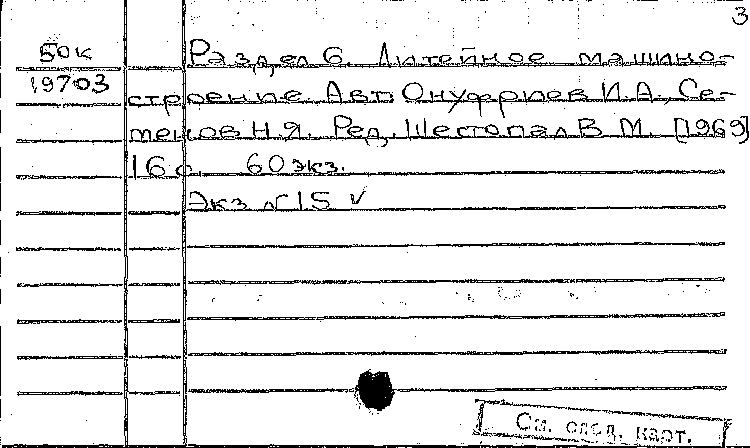 3
50к Раздел 6. Литейное машино-
19703 строение. Авт. Онуфриев И.А., Се-
менов Н.Я. Ред. Шестопал В.М. [1969]
16 с. 60 экз.
Экз. № 15 v
См. след. карт.